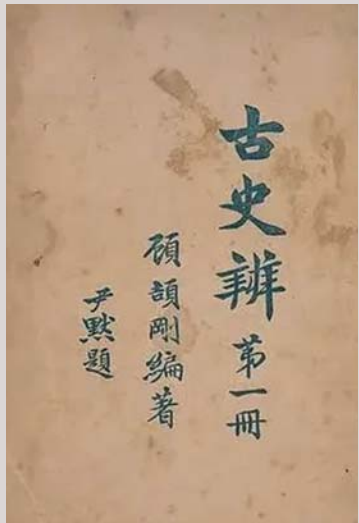 古史辨第一冊
顧頡剛編著
尹默題